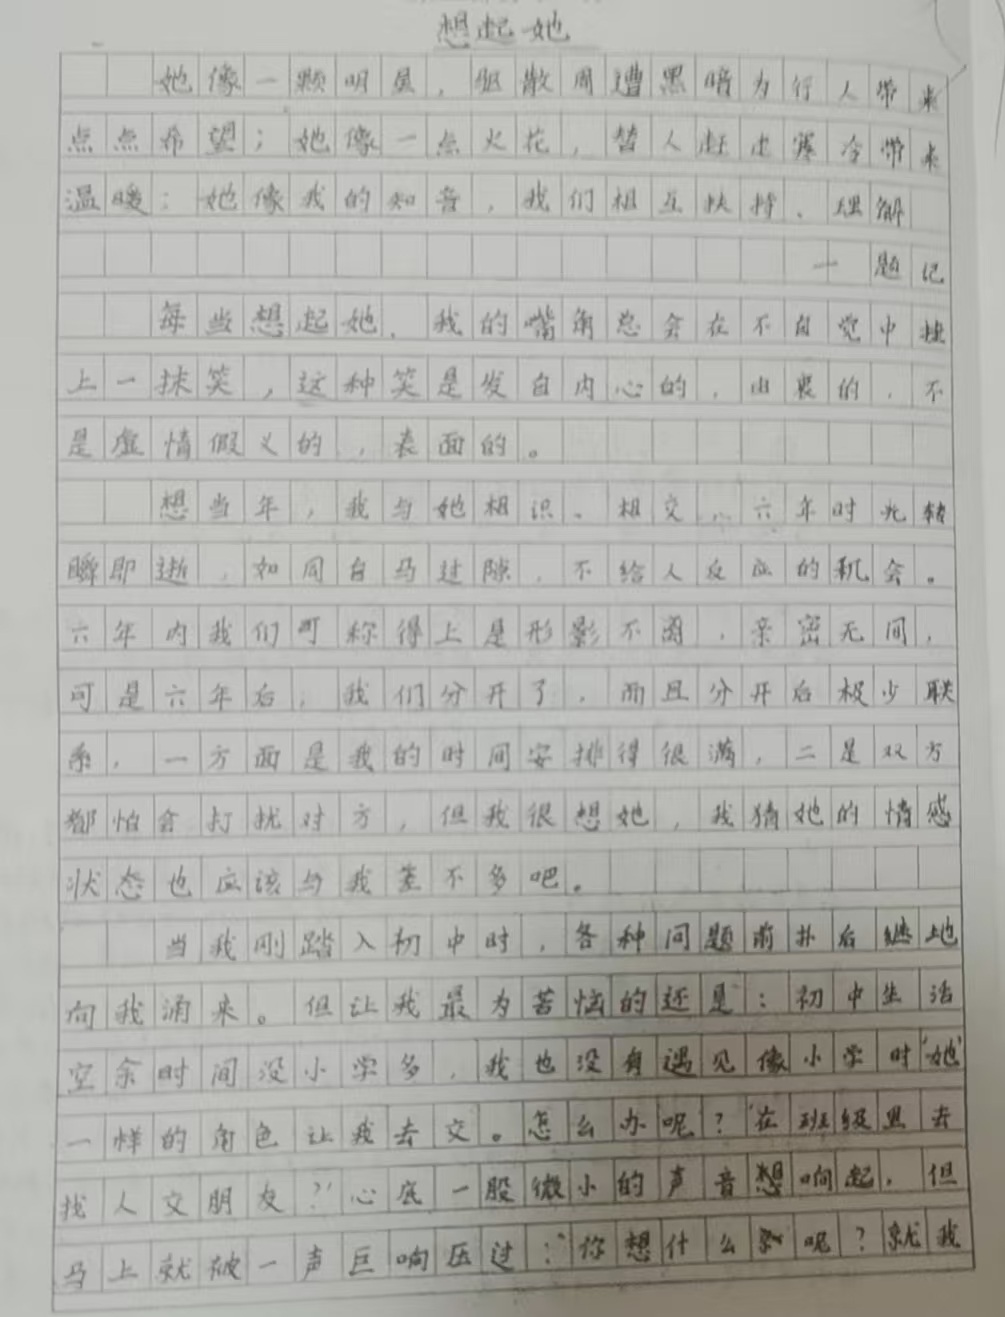 想起她
她像一颗明星，驱散周遭黑暗为行人带来
点点希望；她像一点火花，替人赶走寒冷带来
温暖；她像我的知音，我们相互扶持、理解
一题记
每当想起她，我的嘴角总会在不自觉中挂
上一抹笑，这种笑是发自内心的，由衷的，不
是虚情假义的，表面的。
想当年，我与她相识、相交，六年时光转
瞬即逝，如同白马过隙，不给人反应的机会。
六年内我们可称得上是形影不离，亲密无间，
可是六年后，我们分开了，而且分开后极少联
系，一方面是我的时间安排得很满，二是双方
都怕会打扰对方，但我很想她，我猜她的情感
状态也应该与我差不多吧。
当我刚踏入初中时，各种问题前扑后继地
向我涌来。但让我最为苦恼的还是：初中生活
空余时间没小学多，我也没有遇见像小学时“她”
一样的角色让我去交。怎么办呢？“在班级里去
找人交朋友？”心底一股微小的声音想响起，但
马上就被一声巨响压过：“你想什么呢？就我